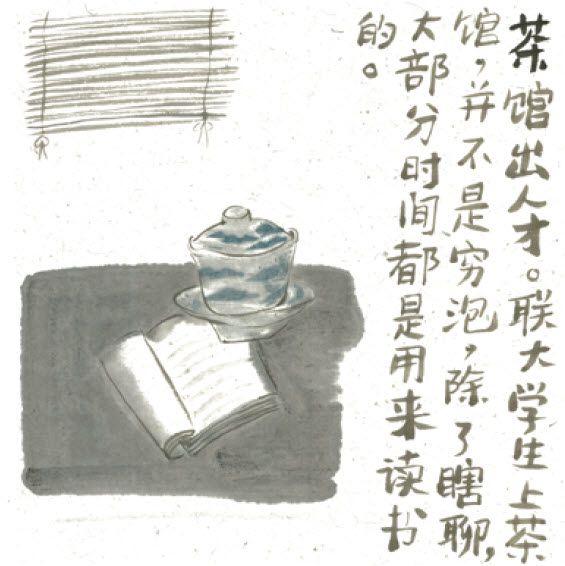 茶馆出人才。联大学生上茶
馆，并不是穷泡，除了瞎聊，
大部分时间都是用来读书
的。